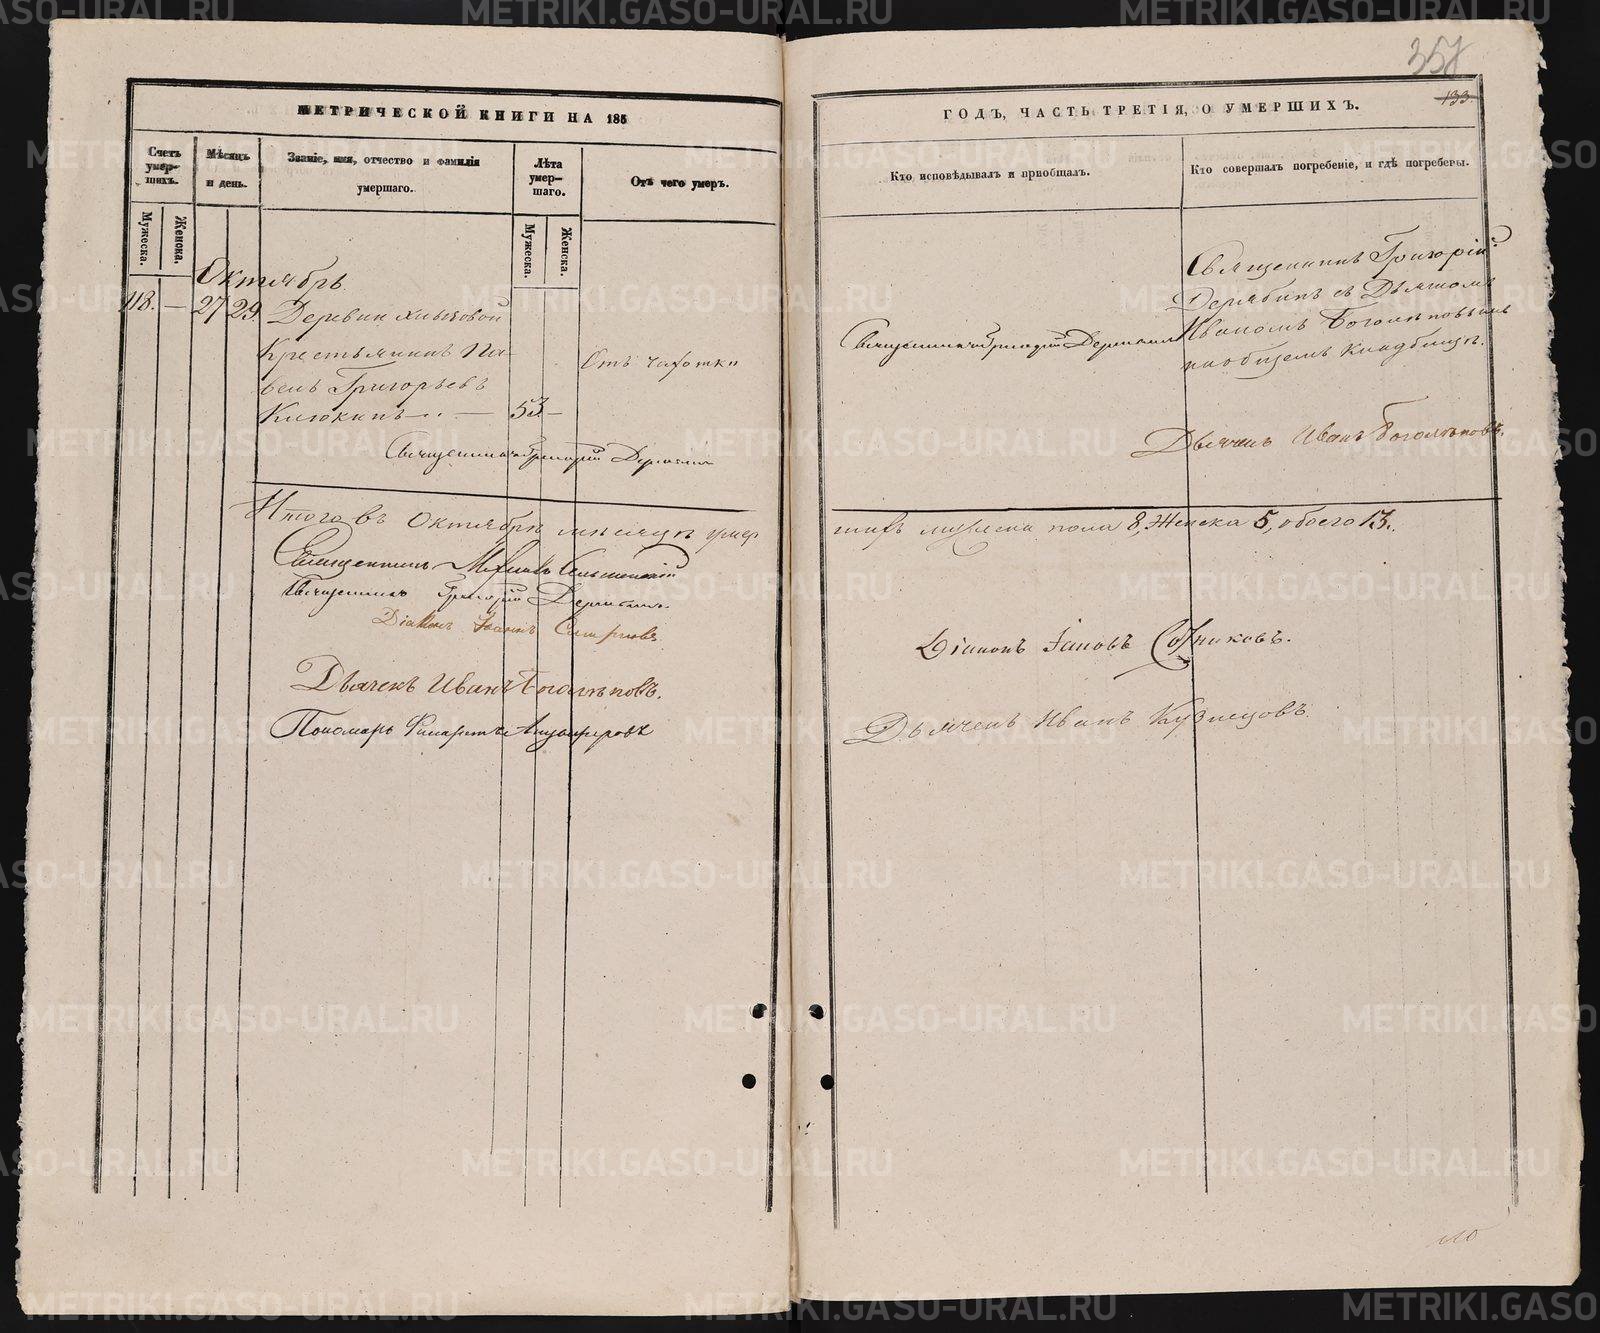 МЕТРИЧЕСКОЙ КНИГИ НА 185
Счетъ умер-шихъ.
Мужеска.
Женска.
Мѣсяцъ и день.
Званіе, имя, отчество и фамилія умершаго.
Лѣта умер-шаго.
Мужеска.
Женска.
Отъ чего умеръ.
Октябрь
118. — 27 29. Деревни
Крестьянинъ Па-
велъ Григорьевъ
Клюкинъ — 53 —
Отъ чахотки
Священникъ Григорій Дерябинъ
Итого въ Октябрѣ мѣсяцѣ умер
Священникъ
Священникъ Григорій Дерябинъ.
Діаконъ Іоаннъ Смирновъ
Дьячекъ Иванъ Боголѣповъ.
Пономарь Филаретъ
357
133
ГОДЪ, ЧАСТЬ ТРЕТІЯ, О УМЕРШИХЪ.
Кто исповѣдывалъ и пріобщалъ.
Кто совершалъ погребеніе, и гдѣ погребены.
Священникъ Григорій Дерябинъ
Священникъ Григорій
Дерябинъ съ Дьячкомъ
Иваномъ Боголѣповымъ
на общемъ кладбищѣ.
Дьячекъ Иванъ Боголѣповъ.
шихъ мужеска пола 8, Женска 5, обоего 13.
Діаконъ Іаковъ Сотниковъ.
Дьячекъ Иванъ Кузнецовъ.
METRIKI.GASO-URAL.RU